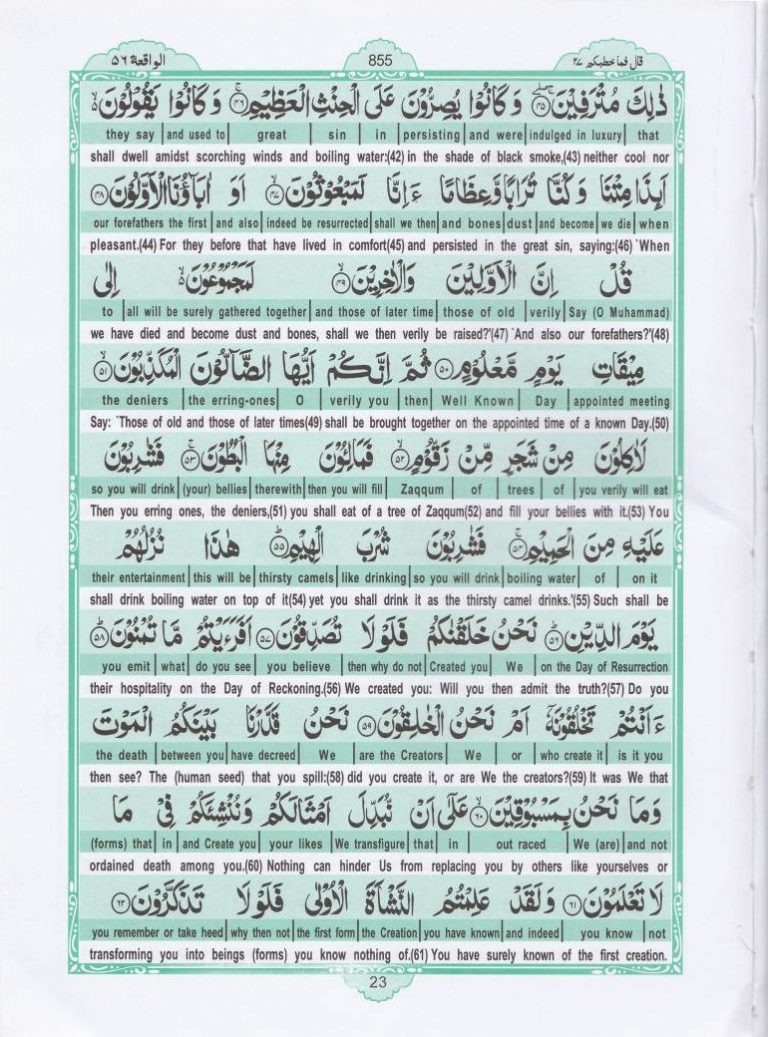 الواقعة ٥٦
855
قال فما خطبكم ٢٧
ذٰلِكَ مُتْرَفِيْنَ ﴿٤٥﴾ وَكَانُوْا يُصِرُّوْنَ عَلَى الْحِنْثِ الْعَظِيْمِ ﴿٤٦﴾ وَكَانُوْا يَقُوْلُوْنَ
they say | and used to | great | sin | in | persisting | and were | indulged in luxury | that
shall dwell amidst scorching winds and boiling water:(42) in the shade of black smoke,(43) neither cool nor
اَىِٕذَا مِتْنَا وَكُنَّا تُرَابًا وَّعِظَامًا ءَاِنَّا لَمَبْعُوْثُوْنَ ﴿٤٧﴾ اَوَ اٰبَآؤُنَا الْاَوَّلُوْنَ ﴿٤٨﴾
our forefathers the first | and also | indeed be resurrected | shall we then | and bones | dust | and become | we die | when
pleasant.(44) For they before that have lived in comfort(45) and persisted in the great sin, saying:(46) `When
قُلْ اِنَّ الْاَوَّلِيْنَ وَالْاٰخِرِيْنَ ﴿٤٩﴾ لَمَجْمُوْعُوْنَ اِلٰى
to | all will be surely gathered together | and those of later time | those of old | verily | Say (O Muhammad)
we have died and become dust and bones, shall we then verily be raised?'(47) `And also our forefathers?'(48)
مِيْقَاتِ يَوْمٍ مَّعْلُوْمٍ ﴿٥٠﴾ ثُمَّ اِنَّكُمْ اَيُّهَا الضَّآلُّوْنَ الْمُكَذِّبُوْنَ ﴿٥١﴾
the deniers | the erring-ones | O | verily you | then | Well Known | Day | appointed meeting
Say: `Those of old and those of later times(49) shall be brought together on the appointed time of a known Day.(50)
لَاٰكِلُوْنَ مِنْ شَجَرٍ مِّنْ زَقُّوْمٍ ﴿٥٢﴾ فَمَالِـُٔوْنَ مِنْهَا الْبُطُوْنَ ﴿٥٣﴾ فَشٰرِبُوْنَ
so you will drink | (your) bellies | therewith | then you will fill | Zaqqum | of | trees | of | you verily will eat
Then you erring ones, the deniers,(51) you shall eat of a tree of Zaqqum(52) and fill your bellies with it.(53) You
عَلَيْهِ مِنَ الْحَمِيْمِ ﴿٥٤﴾ فَشٰرِبُوْنَ شُرْبَ الْهِيْمِ ﴿٥٥﴾ هٰذَا نُزُلُهُمْ
their entertainment | this will be | thirsty camels | like drinking | so you will drink | boiling water | of | on it
shall drink boiling water on top of it(54) yet you shall drink it as the thirsty camel drinks.'(55) Such shall be
يَوْمَ الدِّيْنِ ﴿٥٦﴾ نَحْنُ خَلَقْنٰكُمْ فَلَوْلَا تُصَدِّقُوْنَ ﴿٥٧﴾ اَفَرَءَيْتُمْ مَّا تُمْنُوْنَ ﴿٥٨﴾
you emit | what | do you see | you believe | then why do not | Created you | We | on the Day of Resurrection
their hospitality on the Day of Reckoning.(56) We created you: Will you then admit the truth?(57) Do you
ءَاَنْتُمْ تَخْلُقُوْنَهٗٓ اَمْ نَحْنُ الْخٰلِقُوْنَ ﴿٥٩﴾ نَحْنُ قَدَّرْنَا بَيْنَكُمُ الْمَوْتَ
the death | between you | have decreed | We | are the Creators | We | or | who create it | is it you
then see? The (human seed) that you spill:(58) did you create it, or are We the creators?(59) It was We that
وَمَا نَحْنُ بِمَسْبُوْقِيْنَ ﴿٦٠﴾ عَلٰٓى اَنْ نُّبَدِّلَ اَمْثَالَكُمْ وَنُنْشِئَكُمْ فِيْ مَا
(forms) that | in | and Create you | your likes | We transfigure | that | in | out raced | We (are) | and not
ordained death among you.(60) Nothing can hinder Us from replacing you by others like yourselves or
لَا تَعْلَمُوْنَ ﴿٦١﴾ وَلَقَدْ عَلِمْتُمُ النَّشْاَةَ الْاُوْلٰى فَلَوْلَا تَذَكَّرُوْنَ ﴿٦٢﴾
you remember or take heed | why then not | the first form | the Creation | you have known | and indeed | you know | not
transforming you into beings (forms) you know nothing of.(61) You have surely known of the first creation.
23